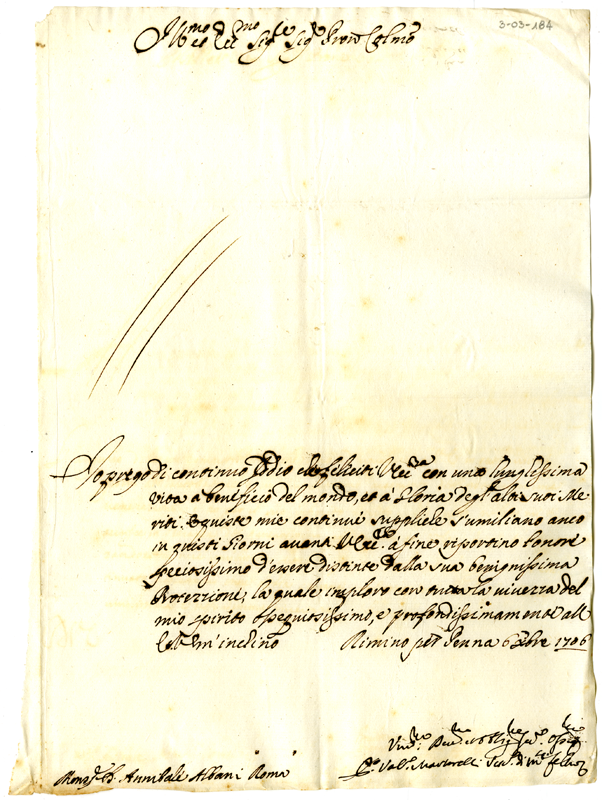 3-03-184
Ill.mo et Ecc.mo Sig.re Sig.r Pron Colmo
Io prego di continuo Iddio che feliciti V.Ecc.za con una lunghissima
vita à beneficio del mondo, et à Gloria degl'alti suoi Me
riti. E queste mie continue suppliche s'umiliano anco
in questi Giorni avanti V.Ecc.za à fine riportino l'onore
speciosissimo d'essere distinte dalla sua benignissima
Protezzione, la quale imploro con tutta la vivezza del
mio spirito ossequiosissimo, e profondissimamente all
m'inclino Rimino per Penna 6 Xbre 1706
Um.mo
Martorelli
Mons.r D. Annibale Albani Roma